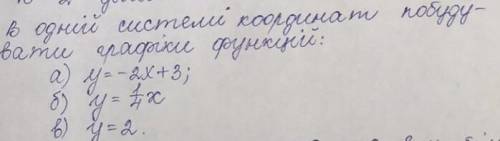 В одній системі координат побуду-
вати графіки функцій:
а) y=-2x+3;
б) y=1/4x
в) y=2.